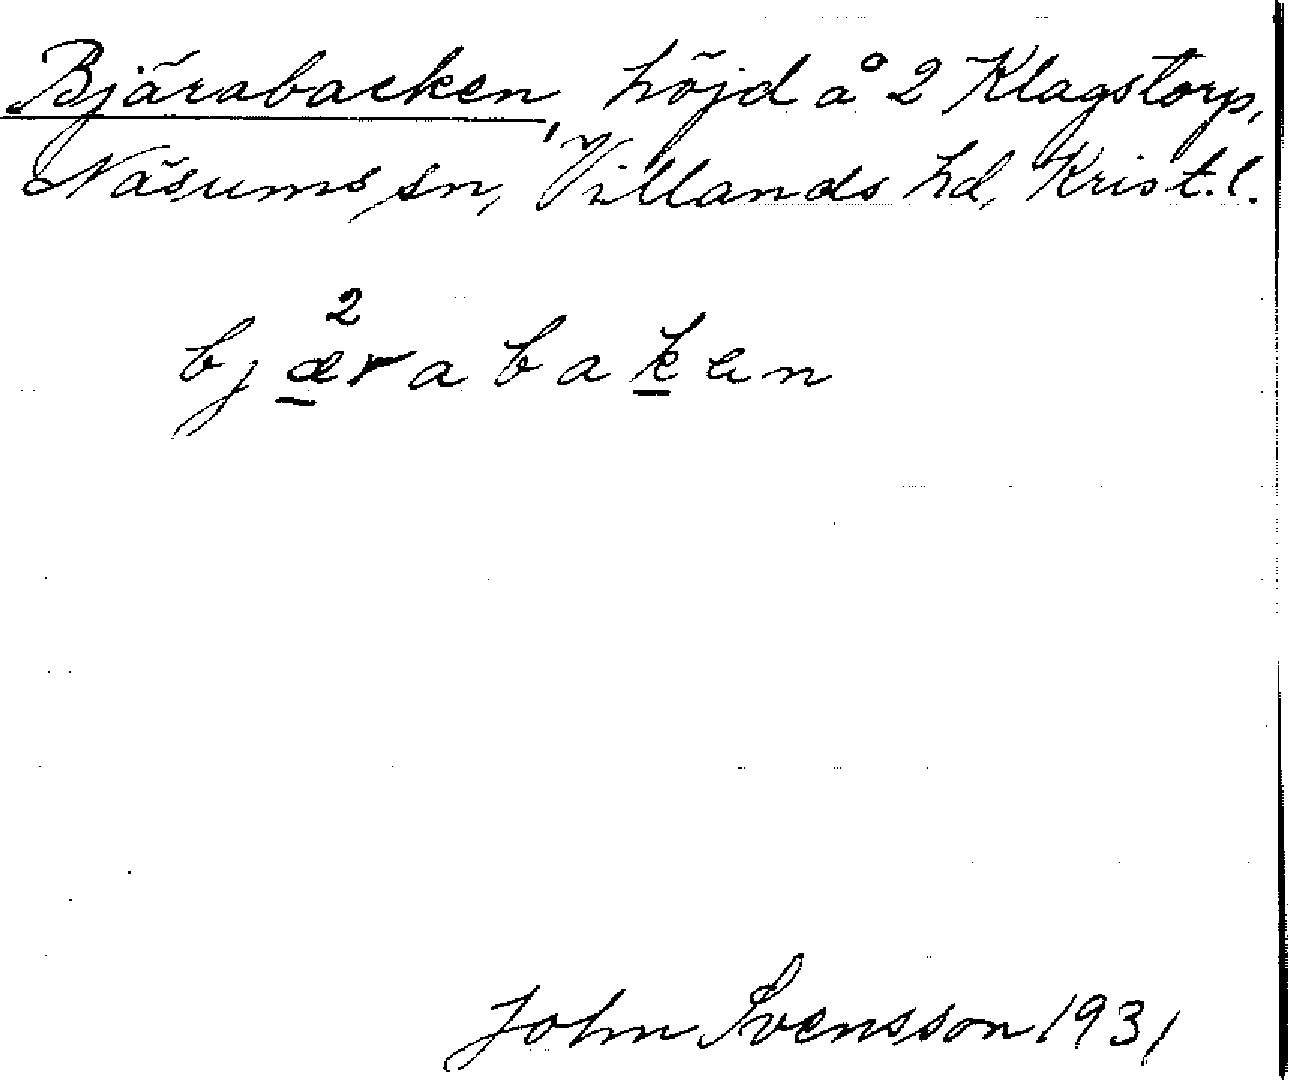 Bjärabacken, höjd å 2 Klagstorp,
Näsums sn, Villands hd, Krist. l.
2
bjærabaken
John Svensson 1931